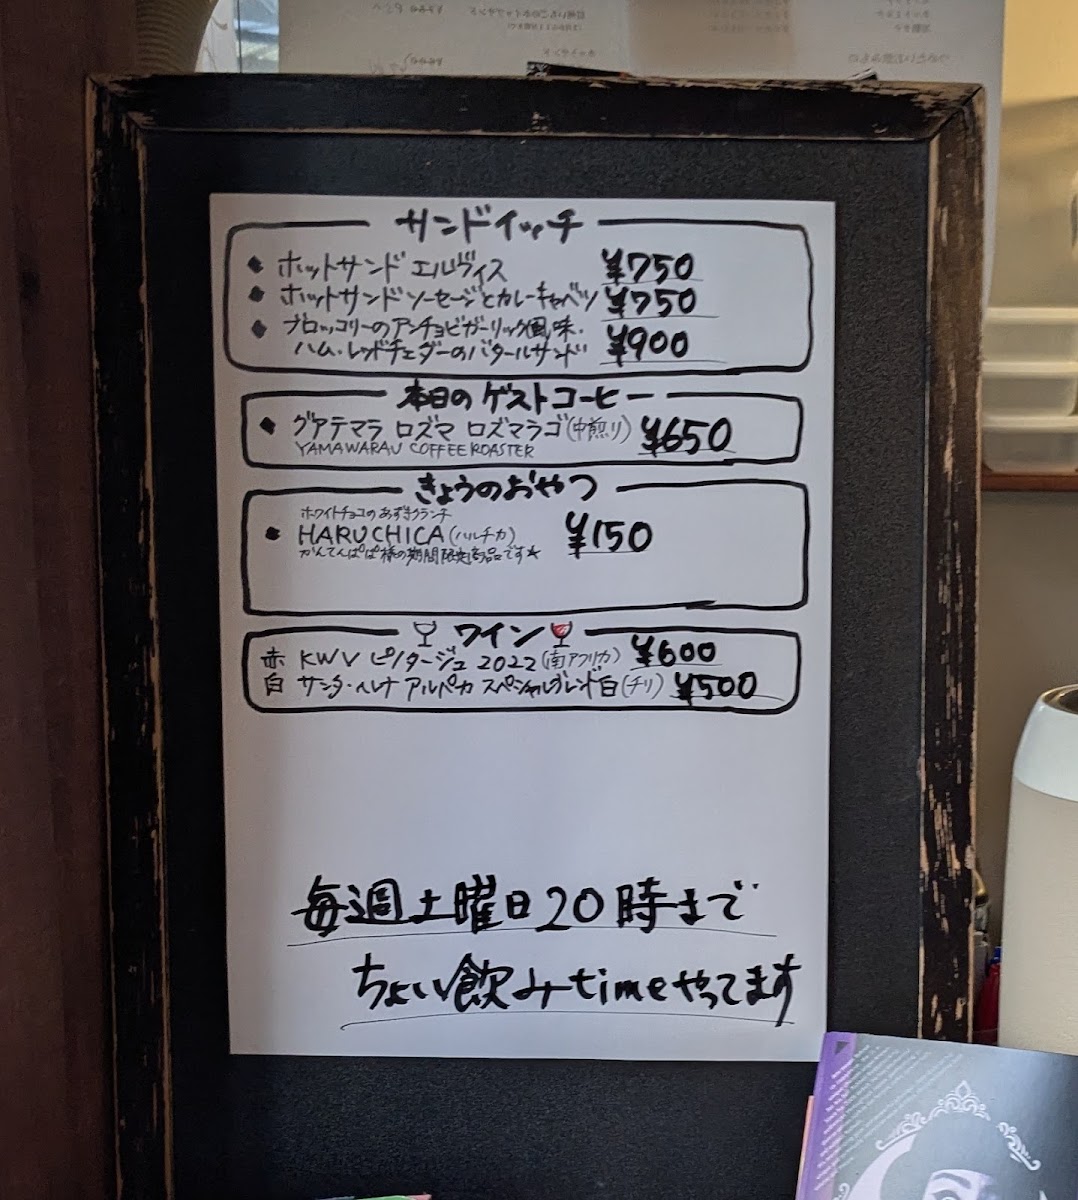 サンドイッチ
◆ ホットサンド エルヴィス ¥750
◆ ホットサンド ソーセージとカレーキャベツ ¥750
◆ ブロッコリーのアンチョビガーリック風味・
ハム・レッドチェダーのバタールサンド ¥900
本日のゲストコーヒー
◆ グアテマラ ロズマ ロズマラゴ(中煎り) ¥650
YAMAWARAU COFFEE ROASTER
きょうのおやつ
ホワイトチョコのあずきクランチ
◆ HARUCHICA(ハルチカ) ¥150
かんてんぱぱ様の期間限定商品です★
ワイン
赤 KWV ピノタージュ 2022(南アフリカ) ¥600
白 サンタ・ヘレナ アルパカ スペシャルブレンド白(チリ) ¥500
毎週土曜日20時まで
ちょい飲みtimeやってます